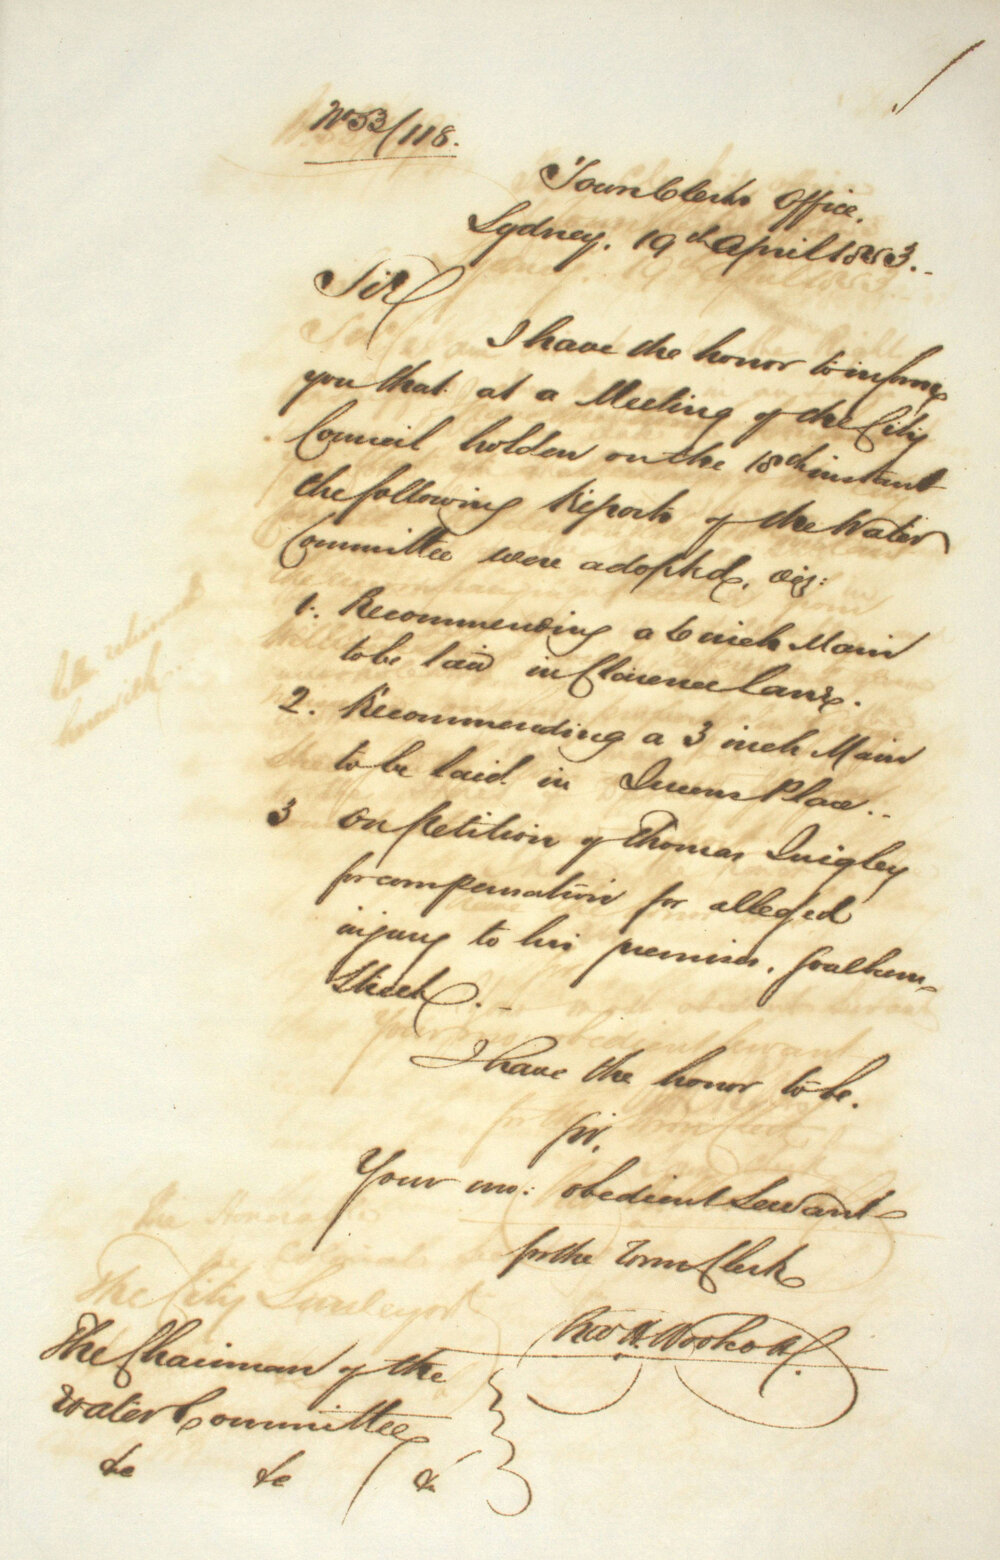 No 53/118.
Town Clerks Office.
Sydney. 19th April 1853.
Sir
I have the honor to inform
you that at a Meeting of the City
Council holden on the 18th instant
the following Reports of the Water
Committee were adopted, viz:
1. Recommending a 6 inch Main
to be laid in Clarence Lane.
2. Recommending a 3 inch Main
to be laid in Queens Place.
3 On Petition of Thomas Quigley
for compensation for alleged
injury to his premises,
Street.
I have the honor to be.
Sir,
Your mo: obedient Servant
for the Town Clerk
Chas H. Woolcott.
The City Surveyor
The Chairman of the
Water Committee
&c &c &c